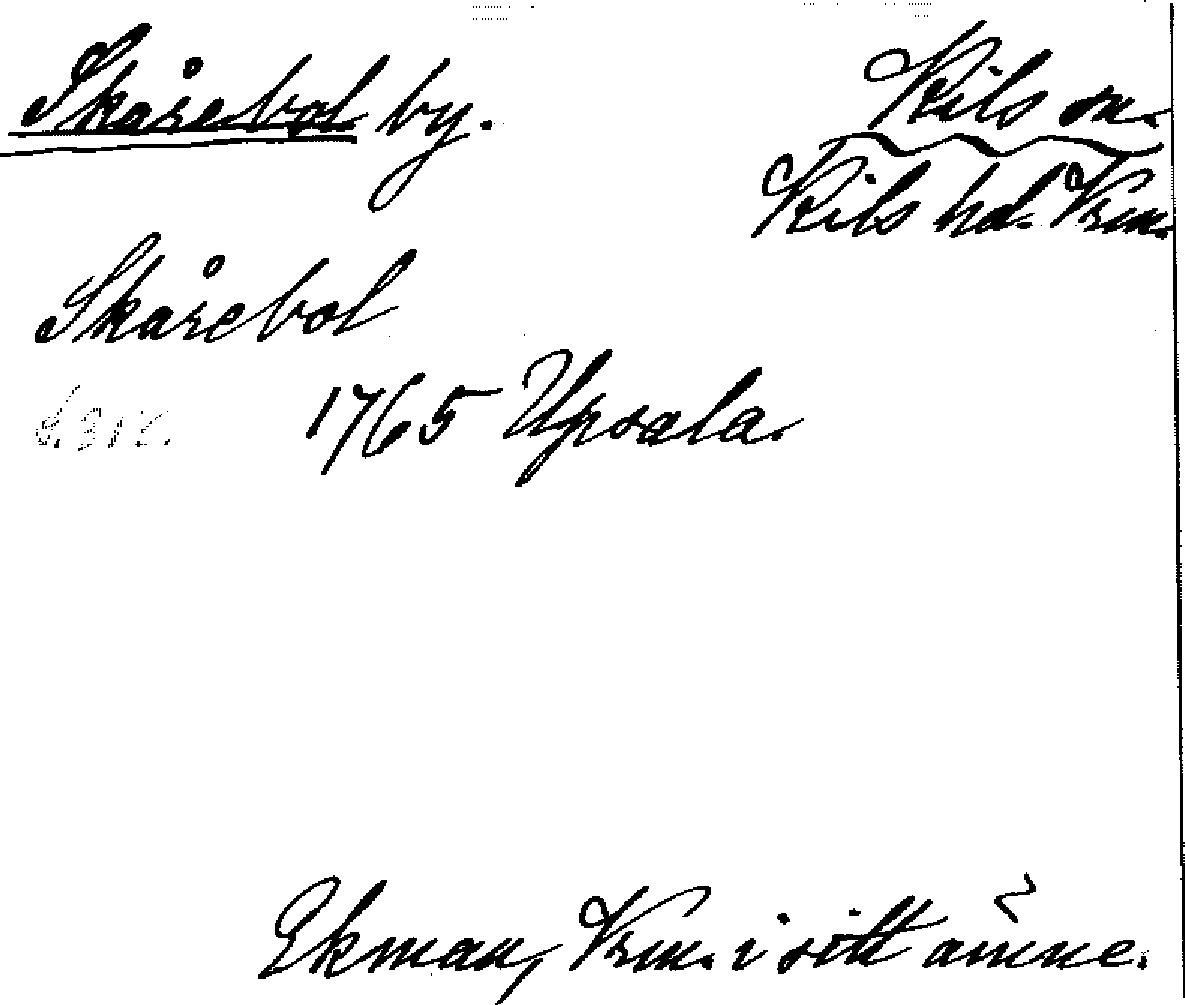 Skårebol by.
Kils sn.
Kils hd. Vrm.
Skårebol
s. 312.
1765 Upsala.
Ekman, Vrm. i sitt ämne.